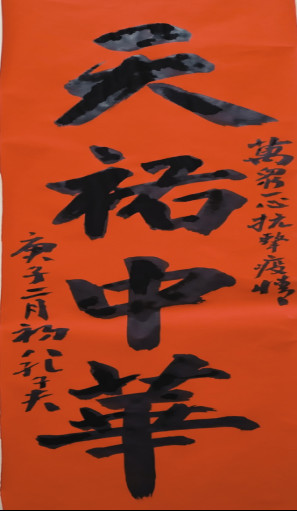 萬眾一心抗擊疫情
天祐中華
庚子二月初八孔子夫